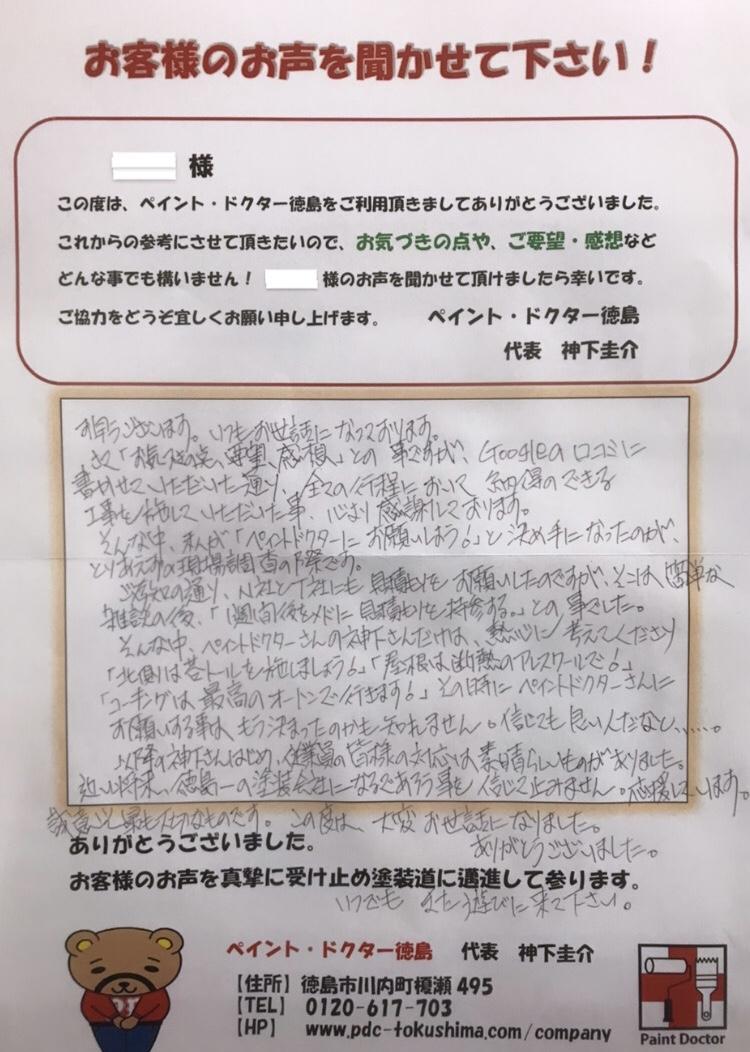 お客様のお声を聞かせて下さい！
様
この度は、ペイント・ドクター徳島をご利用頂きましてありがとうございました。
これからの参考にさせて頂きたいので、お気づきの点や、ご要望・感想など
どんな事でも構いません！ 様のお声を聞かせて頂けましたら幸いです。
ご協力をどうぞ宜しくお願い申し上げます。 ペイント・ドクター徳島
代表 神下圭介
お早うございます。いつもお世話になっております。
さて「お気づきの点、要望、感想」との事ですが、Googleの口コミに
書かせていただいた通り、全ての行程において納得のできる
工事を施していただいた事、心より感謝しております。
そんな中、私が「ペイントドクターにお願いしよう。」と決め手になったのが、
とりあえずの現場調査の際です。
ご存知の通り、N社とT社にも見積もりをお願いしたのですが、そこは簡単な
雑談の後、「1週間後をメドに見積もりを持参する。」との事でした。
そんな中、ペイントドクターさんの神下さんだけは、熱心に考えてくださり
「北側は苔トールを施しましょう！」「屋根は断熱のアレスクールで！」
「コーキングは最高のオートンで行きます！」その時にペイントドクターさんに
お願いする事は、もう決まったのかも知れません。信じても良いんだなと……。
以降の神下さんはじめ、従業員の皆様の対応は素晴らしいものがありました。
近い将来、徳島一の塗装会社になるであろう事を信じて止みません。応援しています。
誠意こそ最も大切なものです。この度は、大変お世話になりました。
ありがとうございました。
ありがとうございました。
お客様のお声を真摯に受け止め塗装道に邁進して参ります。
いつでも また遊びに来て下さい。
ペイント・ドクター徳島 代表 神下圭介
【住所】徳島市川内町榎瀬 495
【TEL】 0120-617-703
【HP】 www.pdc-tokushima.com/company
Paint Doctor